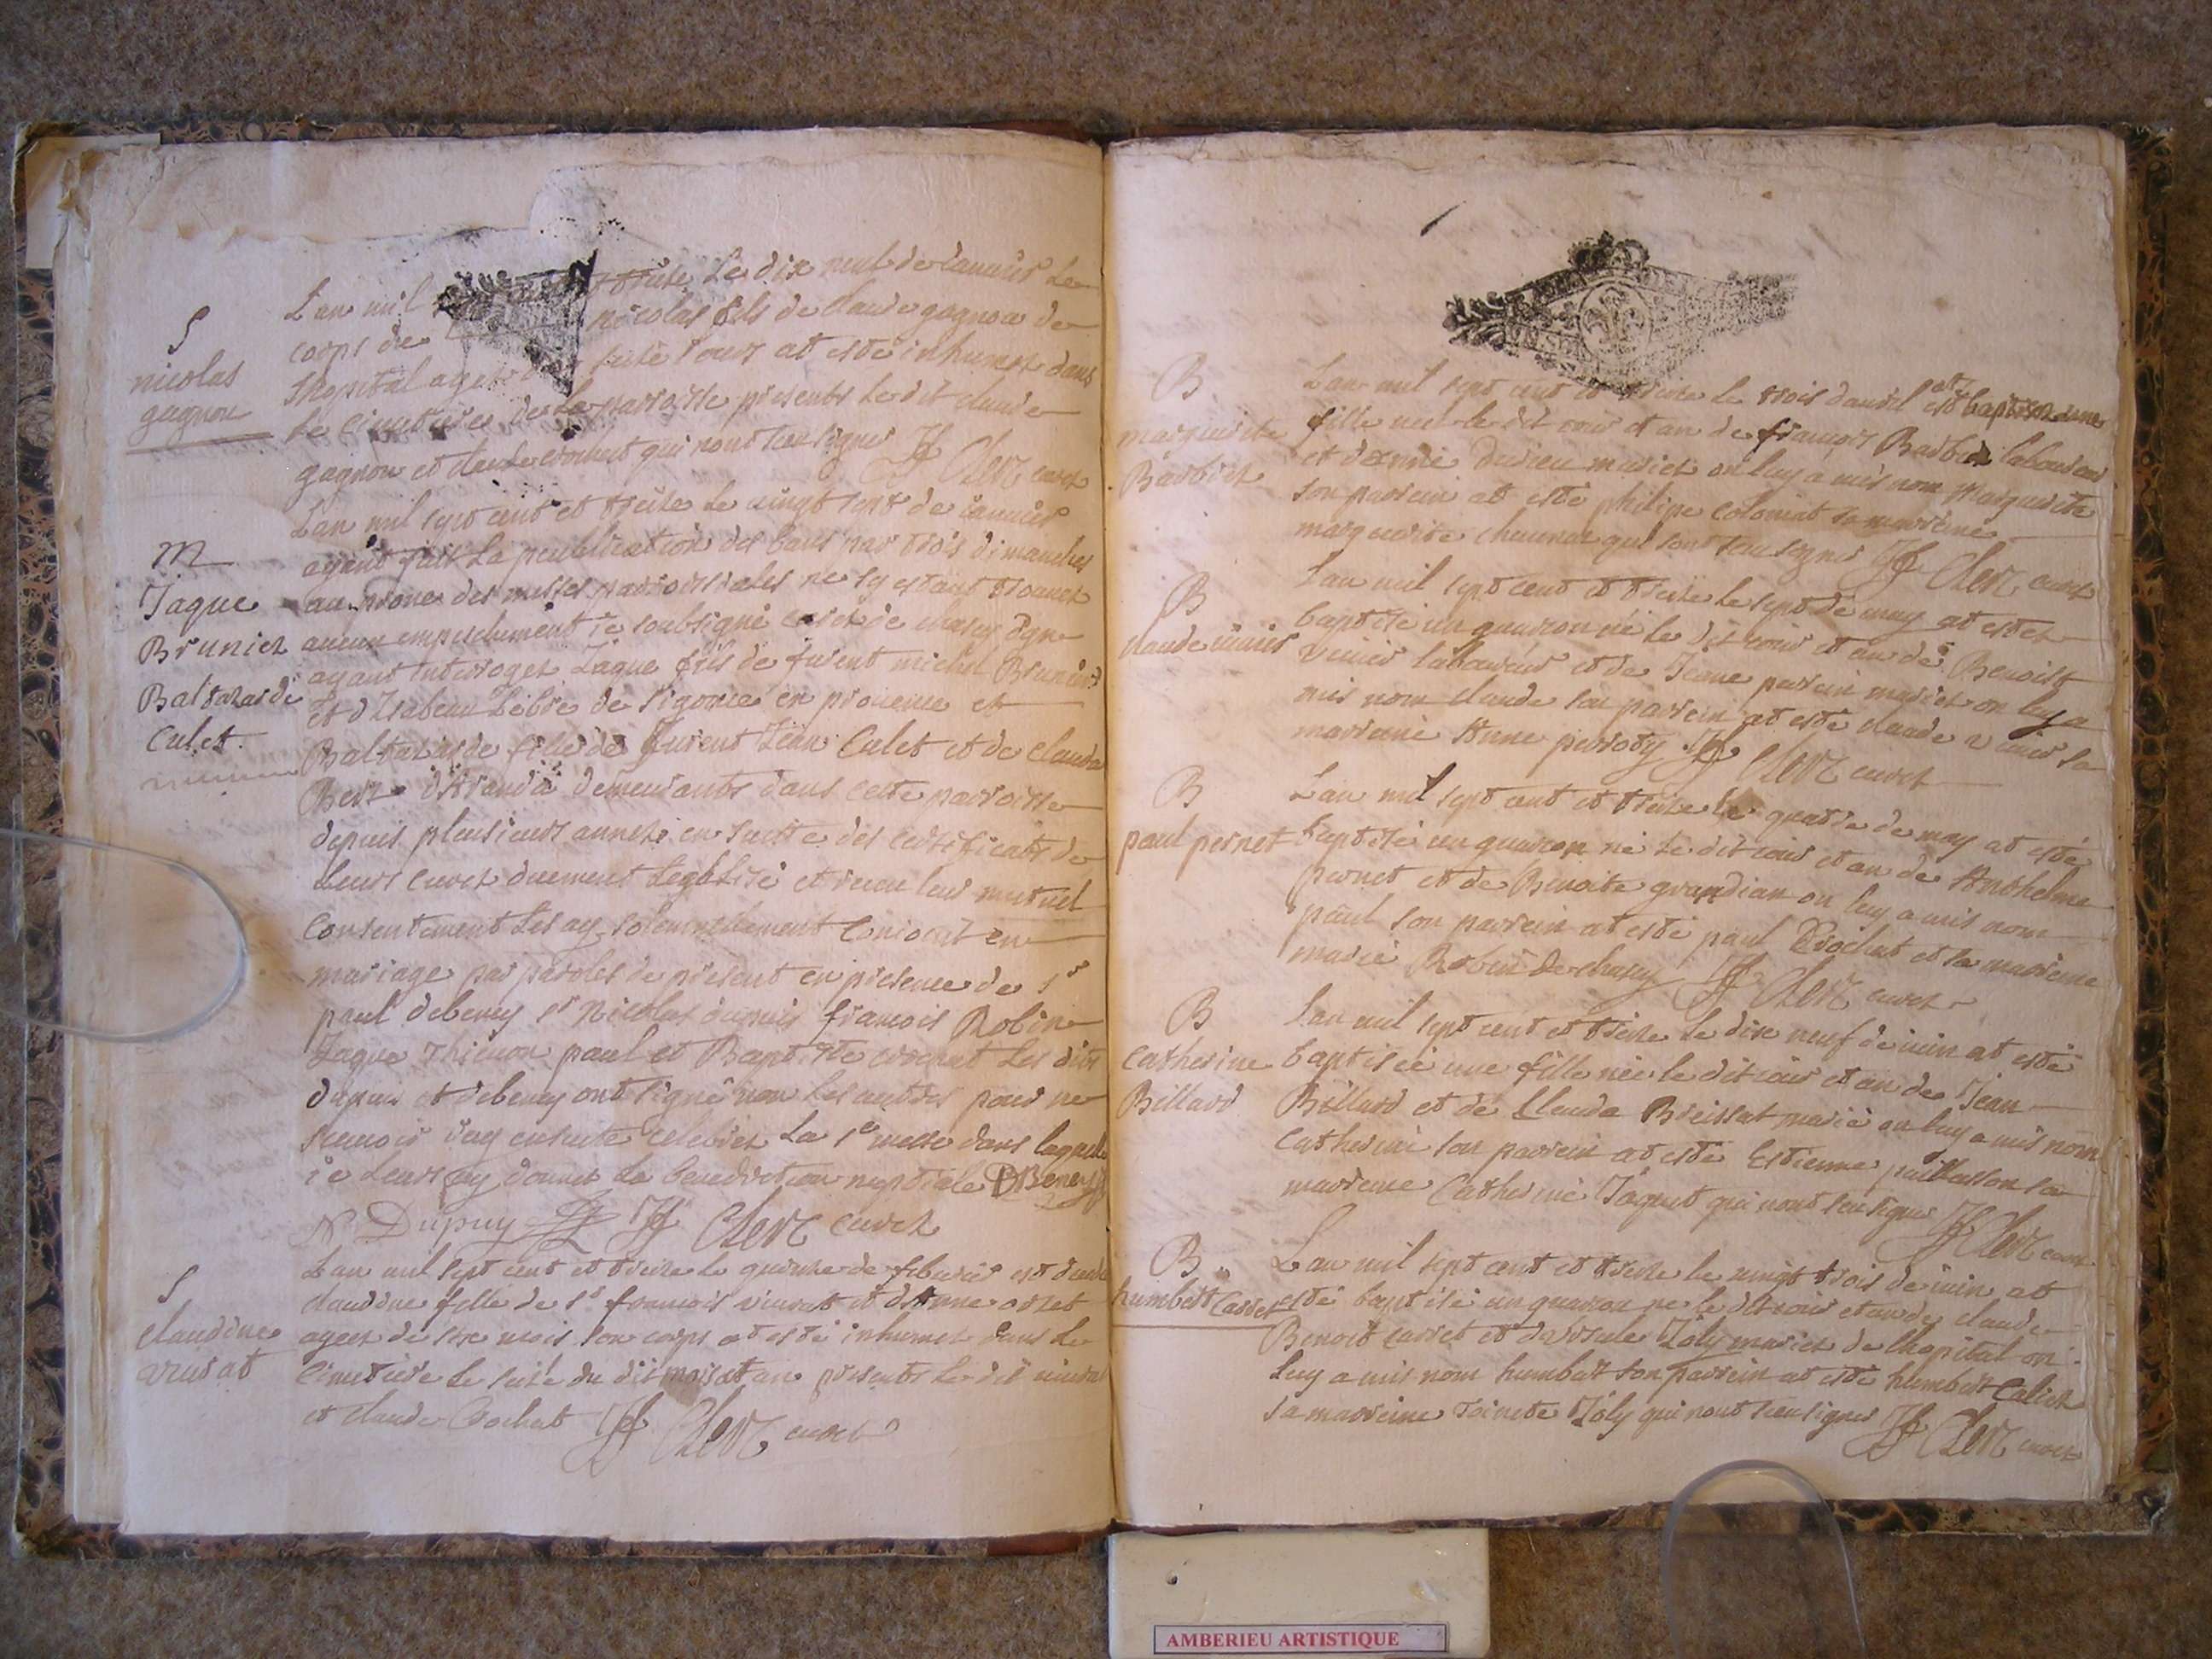 S
nicolas
gagnon
L'an mil treise Le dix neuf de Januier Le
corps de nicolas fils de claude gagnon de
lhopital agez de seise iours at esté inhumez dans
Le Cimetiere de La parroisse presents Le dit claude
gagnon et claude crochet qui nont sceu signer JF Clerc curez
M
Jaque
Brunier
Baltazarde
Culet.
L'an mil sept cent et treise Le vingt sept de ianuier
ayant fait La publication des bans par trois dimanches
au prone des messes parroissiales ne sy estant trouuez
aucun empeschement ie soubsigné curez de chasey
ayant Interrogez Jaque fils de furent michel Brunier
et d'Isabeau Lebre de Sigonce en prouence et
Baltazarde fille de furent Jean Culet et de Clauda
d'Aranda demeurants dans cette parroisse
depuis plusieurs annez en suitte des certificats de
Leurs curez duement Leglisé et receu leur mutuel
Consentement Les ay solemnellement Conioint en
mariage par paroles de present en presence de sr
paul debeney sr Nicolas dupuis francois Robin
Jaque Thieuon paul et Baptiste crochat Les dits
dupuis et debeney ont signé non Les autres pour ne
scauoir iay ensuite celebrez La ste messe dans laquelle
ie Leurs ay donnez La benediction nuptiale DBeney
N Dupuy JF Clerc curez
S
claudine
viurat
L'an mil sept cent et treize Le quinze de feburier est
claudine fille de sr francois viurat et d'Anne
agee de six mois son corps at esté inhumez dans Le
Cimetiere Le seisé du dit mois et an presents Le dit viurat
et claude Crochat JF Clerc curez
B
marguerite
Barbier
L'an mil sept cent et treize le trois d'auril at esté baptisez une
fille nee le dit iour et an de francois Barbier laboureur
et mariez on luy a mis nom Marguerite
son parrein at esté philipe coloniat sa marreine
marguerite qui sont sceu signer JF Clerc curez
B
claude
L'an mil sept cent et treize le sept de may at estez
baptisé un guarcon né le dit iour et an de Benoist
laboureur et de Jeane mariez on luy a
mis nom claude son parrein at esté claude sa
marreine Anne JF Clerc curez
B
paul pernet
L'an mil sept cent et treize le quatre de may at esté
baptisé un guarcon né Le dit iour et an de Anthelme
pernet et de Benoite grandian on luy a mis nom
paul son parrein at esté paul Crochat et sa marreine
marie Robin de chasey JF Clerc curez
B
Catherine
Billard
L'an mil sept cent et treize Le dix neuf de iuin at esté
baptisée une fille née le dit iour et an de Jean
Billard et de Clauda Breissat marié on luy a mis nom
Catherine son parrein at esté Estienne sa
marreine Catherine Jaquet qui nont sceu signer JF Clerc curez
B
humbert Carret
L'an mil sept cent et treize le vingt trois de iuin at
esté baptisé un guarcon ne le dit iour et an de claude
Benoit carret et d'Ursule Joly mariez de lhopital on
luy a mis nom humbert son parrein at esté humbert
sa marreine Toinete Joly qui nont sceu signer JF Clerc curez
AMBERIEU ARTISTIQUE